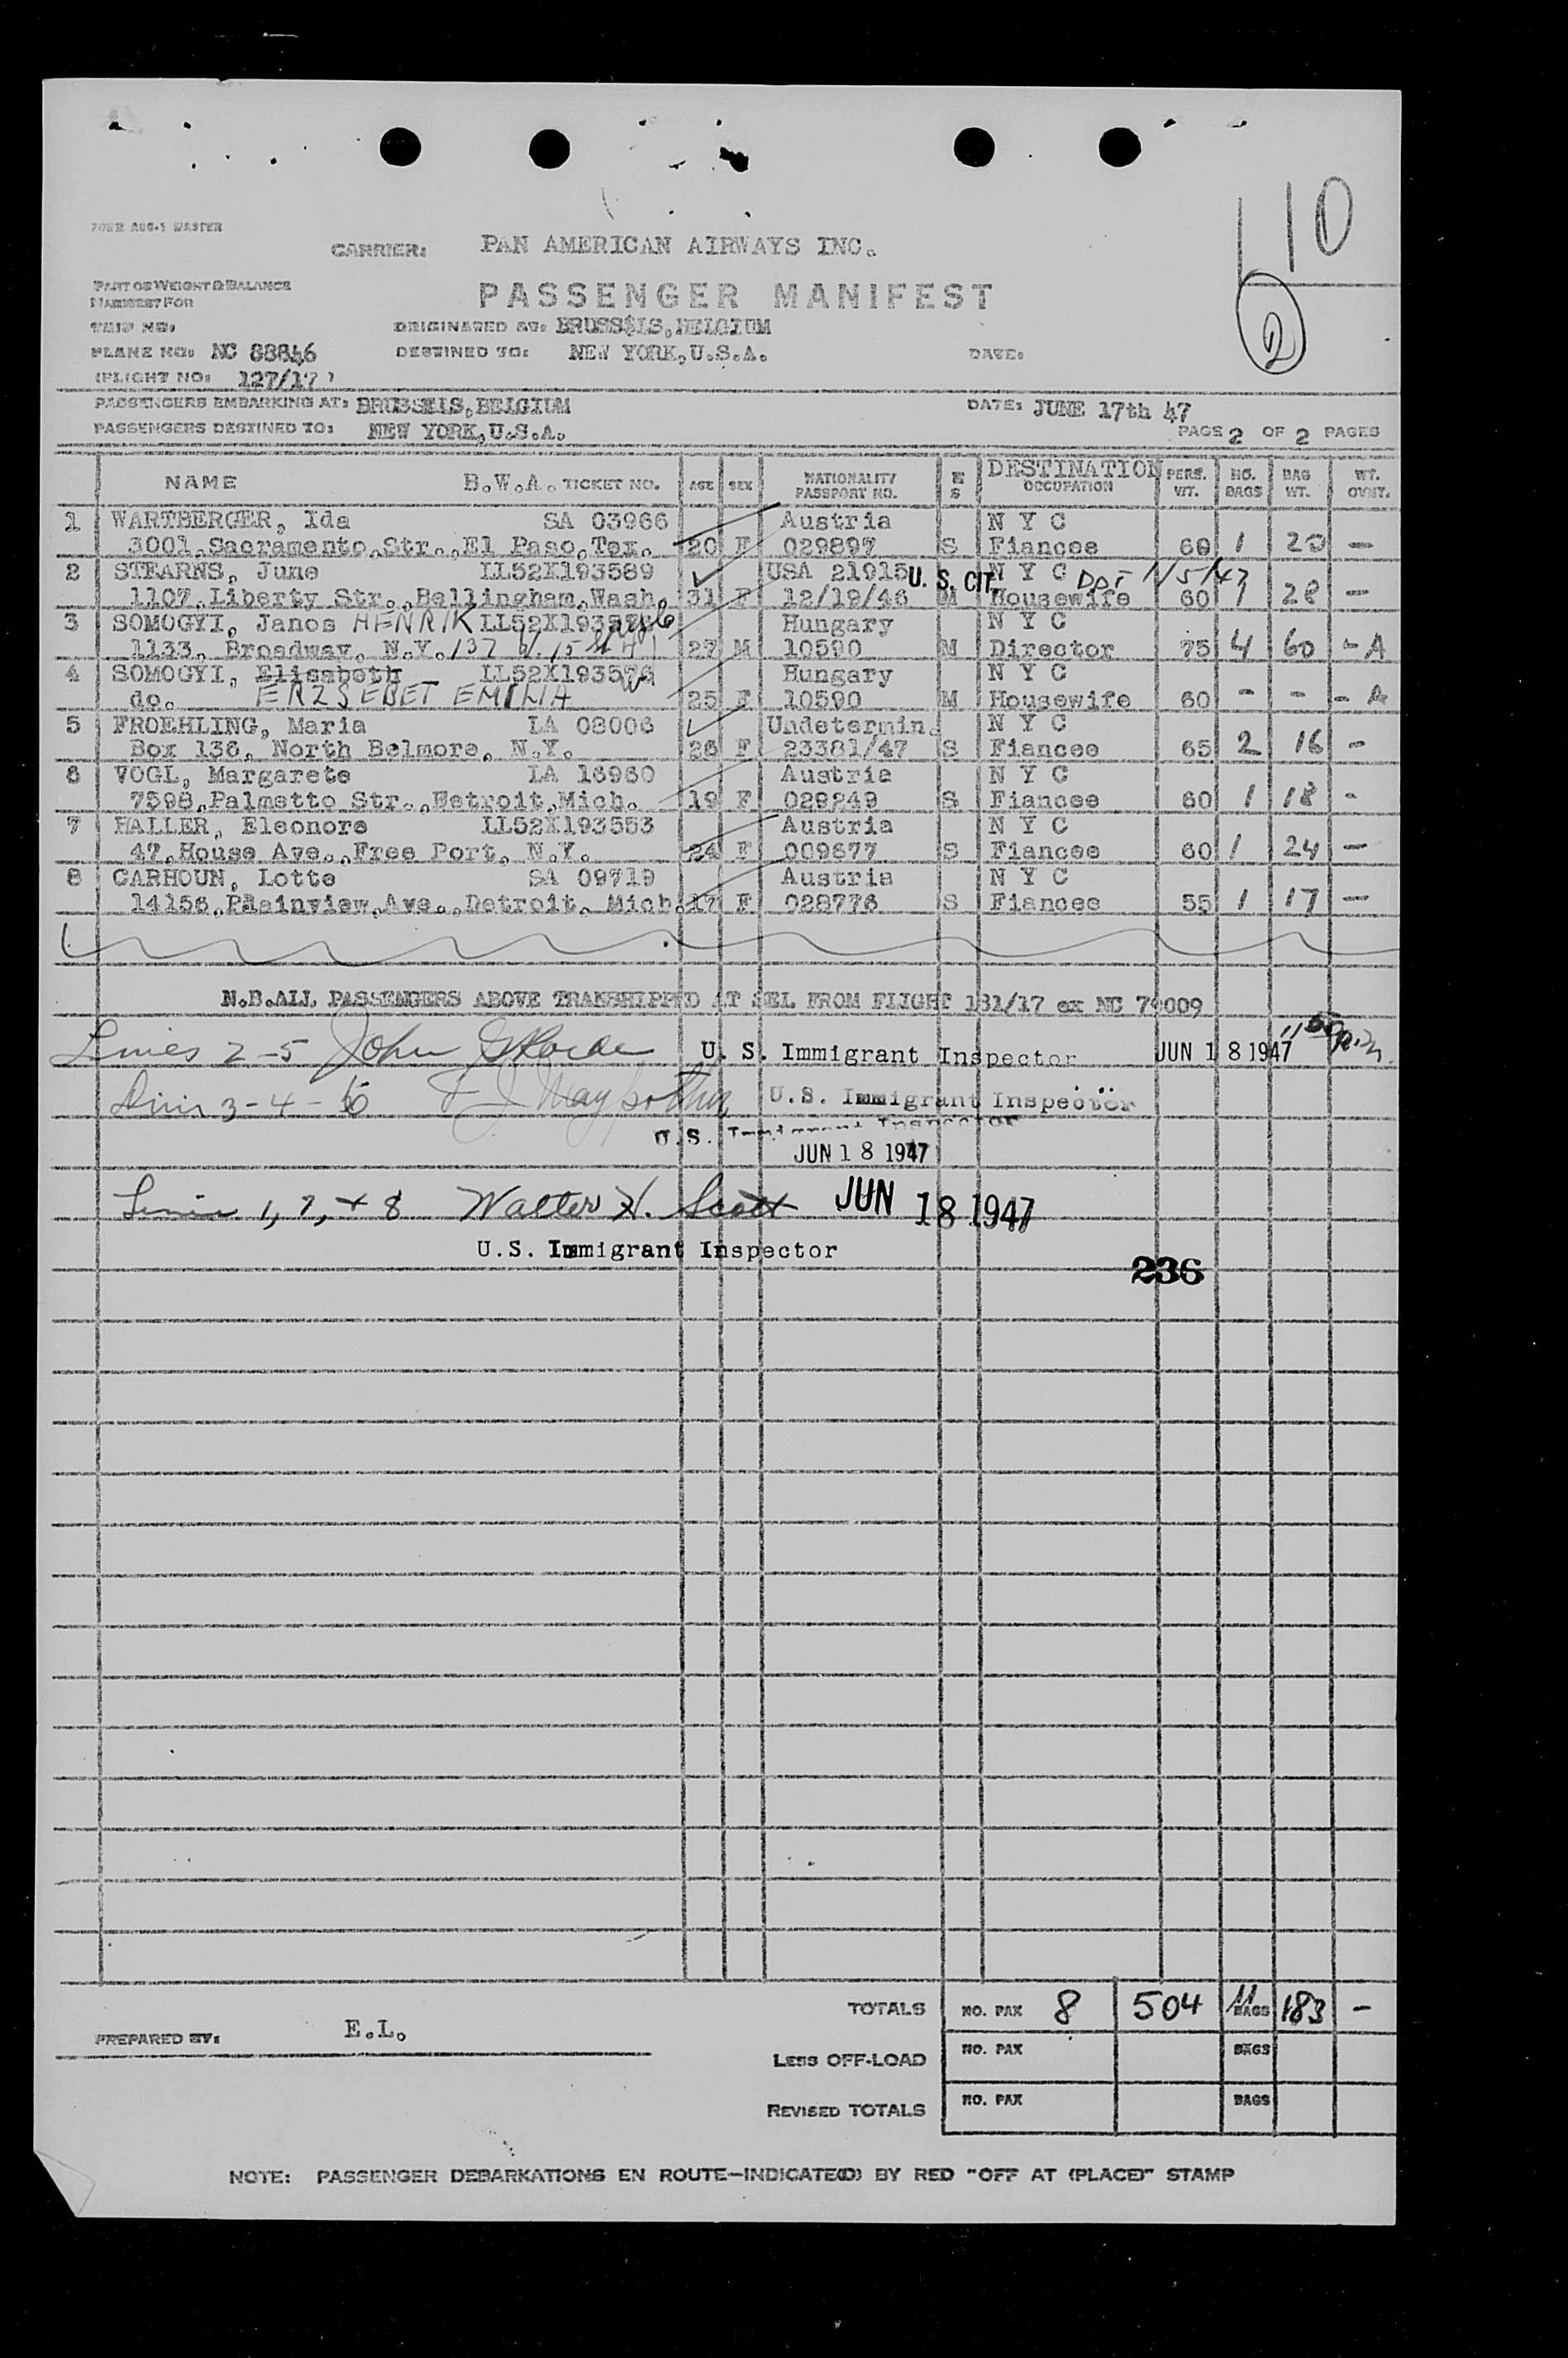 FORM AUG-1 MASTER
CARRIER: PAN AMERICAN AIRWAYS INC.
10
2
PART OF WEIGHT & BALANCE
MANIFEST FOR
PASSENGER MANIFEST
TRIP NO:
ORIGINATED AT: BRUSSELS, BELGIUM
PLANE NO: NC 88846
DESTINED TO: NEW YORK, U.S.A.
DATE:
(FLIGHT NO: 127/17)
PASSENGERS EMBARKING AT: BRUSSELS, BELGIUM
DATE: JUNE 17th 47
PASSENGERS DESTINED TO: NEW YORK, U.S.A.
PAGE 2 OF 2 PAGES
NAME B.W.A. TICKET NO. AGE SEX NATIONALITY PASSPORT NO. M S DESTINATION OCCUPATION PERS. WT. NO. BAGS BAG WT. WT. OVHT.
1 WARTBERGER, Ida SA 03966 Austria N Y C
3001, Sacramento, Str., El Paso, Tex. 20 F 029897 S Fiancee 60 1 20 —
2 STEARNS, June LL52X193589 USA 21915 U. S. CIT. N Y C
1107, Liberty Str., Bellingham, Wash. 31 F 12/19/46 M Housewife 60 1 28 —
3 SOMOGYI, Janos HENRIK Hungary N Y C
1133, Broadway, N.Y. 137 W. 27 M 10590 M Director 75 4 60 - A
4 SOMOGYI, Elisabeth Hungary N Y C
do. ERZSEBET EMILIA 25 F 10590 M Housewife 60 - - - A
5 FROEHLING, Maria LA 08006 Undetermin. N Y C
Box 136, North Belmore, N.Y. 26 F 23381/47 S Fiancee 65 2 16 -
6 VOGL, Margarete LA 16960 Austria N Y C
7598, Palmetto Str., Detroit, Mich. 19 F 029249 S Fiancee 60 1 18 -
7 HALLER, Eleonore LL52X193553 Austria N Y C
47, House Ave., Free Port, N.Y. 24 F 009677 S Fiancee 60 1 24 —
8 CARHOUN, Lotte SA 09719 Austria N Y C
14156, Plainview, Ave., Detroit, Mich. 17 F 028776 S Fiancee 55 1 17 —
N.B. ALL PASSENGERS ABOVE TRANSHIPPED AT SEL FROM FLIGHT 131/17 ex NC 79009
Lines 2-5 John U. S. Immigrant Inspector JUN 18 1947
3-4-6 U.S. Immigrant Inspector
U.S. Immigrant Inspector
JUN 18 1947
Lines 1, 7, + 8 Walter H. Scott JUN 18 1947
U.S. Immigrant Inspector
236
TOTALS NO. PAX 8 504 11 BAGS 183 —
PREPARED BY: E.L.
LESS OFF-LOAD NO. PAX BAGS
REVISED TOTALS NO. PAX BAGS
NOTE: PASSENGER DEBARKATIONS EN ROUTE—INDICATE(D) BY RED "OFF AT (PLACE)" STAMP